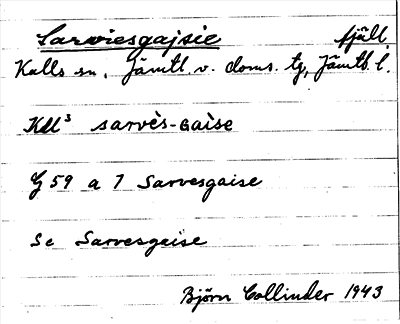 Sarviesgajsie fjäll
Kalls sn, Jämtl. v. doms. tg, Jämtl. l.
Kll³ sarvès-gaìse
G 59 a 7 Sarvesgaise
Se Sarvesgeise
Björn Collinder 1943